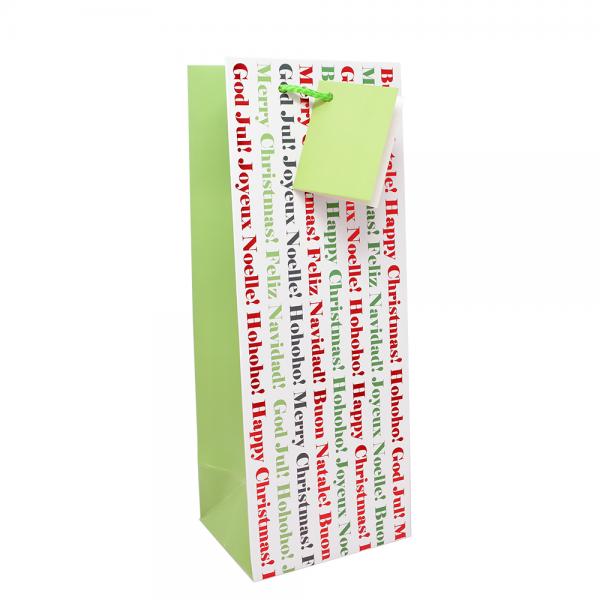 Natale! Happy Christmas! Hohoho! God Jul! M
Feliz Navidad! Joyeux Noelle! Buon
Noelle! Hohoho! Happy Christmas!
Happy Christmas! Hohoho! Joyeux Noe
Merry Feliz Navidad! Buon Natale! Buon
God Jul! Joyeux Noelle! Hohoho! Merry Christmas! F
Merry Christmas! Feliz Navidad! God Jul! Hohoho!
God Jul! Joyeux Noelle! Hohoho! Happy Christmas!